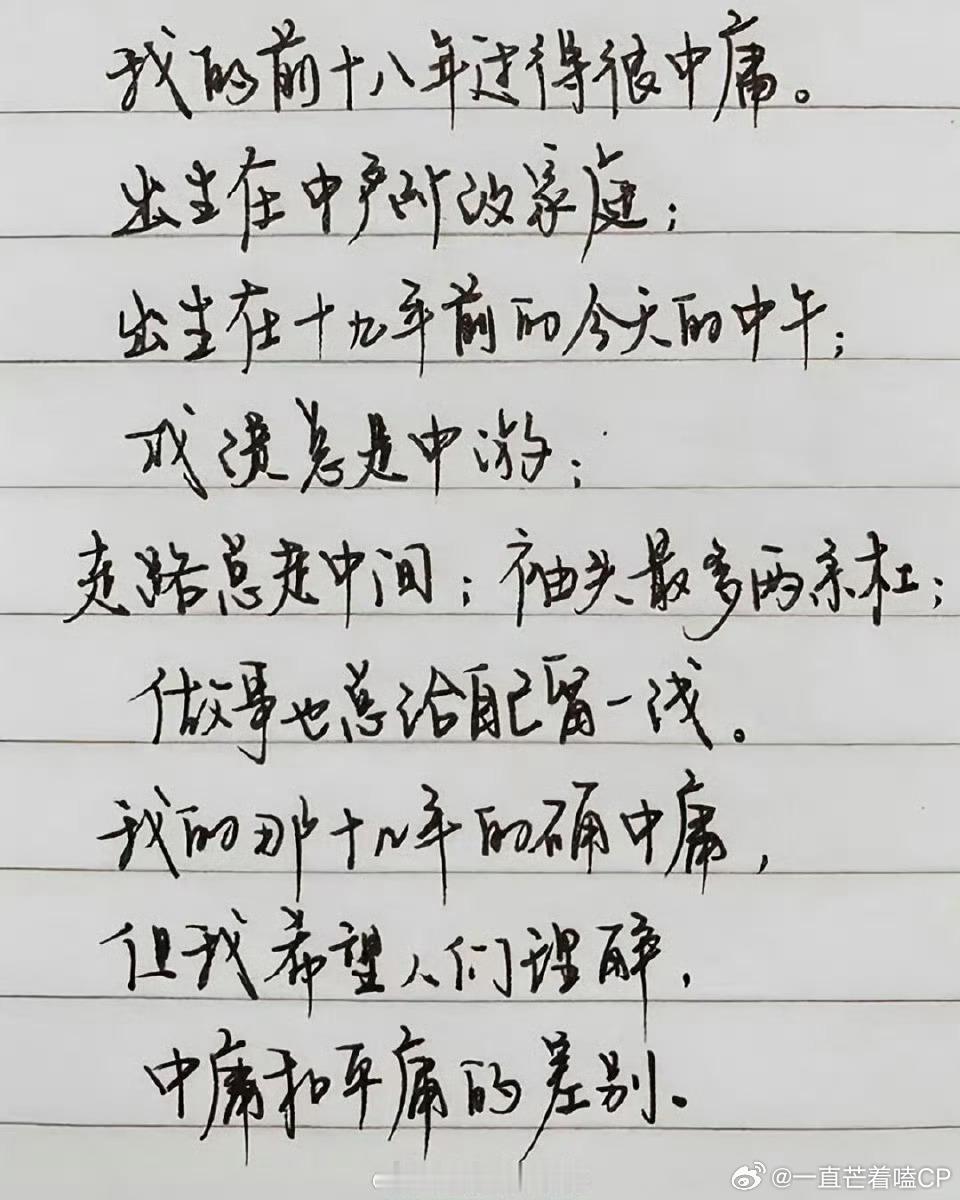 我的前十八年过得很中庸。
出生在中产阶级家庭；
出生在十九年前的今天的中午；
成绩总是中游；
走路总走中间；袖头最多两条杠；
做事也总给自己留一线。
我的那十八年的确中庸，
但我希望人们理解，
中庸和平庸的差别。
@一直芒着嗑CP